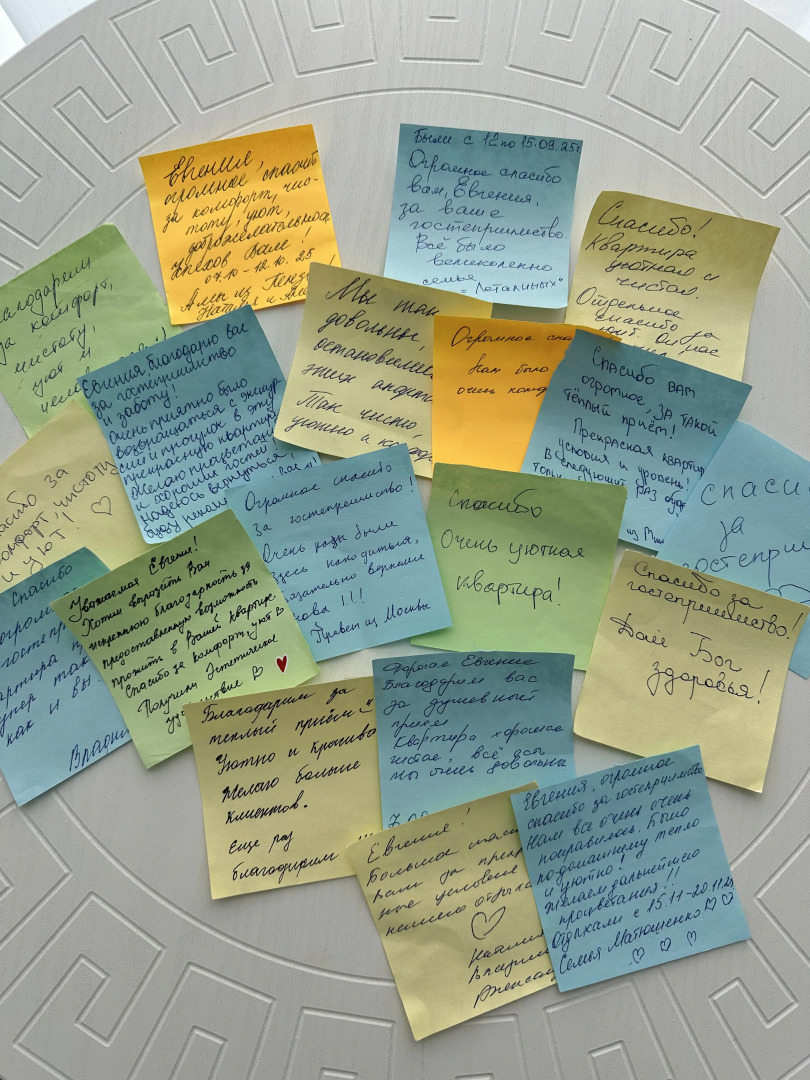 Евгения,
огромное спасибо
за комфорт, чис-
тоту, уют,
доброжелательность
Успехов Вам!
07.10 - 12.10.25
Наталья и
Были с 12 по 15.09.25г
Огромное спасибо
вам, Евгения,
за ваше
гостеприимство.
Всё было
великолепно
семья
"Леталиных"
Спасибо!
Квартира
уютная и
чистая.
Отдельное
спасибо за
за комфорт,
чистоту,
уют и
Мы так
довольны,
остановились
этих
Так чисто
уютно и
Огромное
Нам было
очень
Евгения, благодарю вас
за гостеприимство
и заботу!
Очень приятно было
возвращаться с экскур-
сий и прогулок в эту
прекрасную квартиру
Желаю процветания
и хороших гостей!
Надеюсь вернуться,
Спасибо вам
огромное, за такой
тёплый приём!
Прекрасная квартира
условия и уровень!
В следующий раз
только
из
за
уют!
Огромное спасибо
за гостеприимство!
Очень рады были
здесь находиться,
вернемся
снова!!!
Привет из Москвы
Спасибо
Очень уютная
квартира!
за
Спасибо
как и вы
Уважаемая Евгения!
Хотим выразить Вам
искреннюю благодарность за
предоставленную возможность
прожить в Вашей квартире.
Спасибо за комфорт, уют
Получили Эстетическое
удовольствие
Спасибо за
гостеприимство!
Дай Бог
здоровья!
Благодарим за
теплый приём
Уютно и красиво
Желаю больше
клиентов.
Еще раз
благодарим
Дорогая Евгения
Благодарим вас
за душевный
прием
Квартира хорошая
чистая, всё есть
мы очень довольны
Евгения!
Большое
Вам за
ные условия
нашего
Евгения, огромное
спасибо за гостеприимство
Нам все очень очень
понравилось. Было
по домашнему тепло
и уютно!
Желаем дальнейшего
процветания!!!
Отдыхали с 15.11-20.11.25
Семья Матюшенко